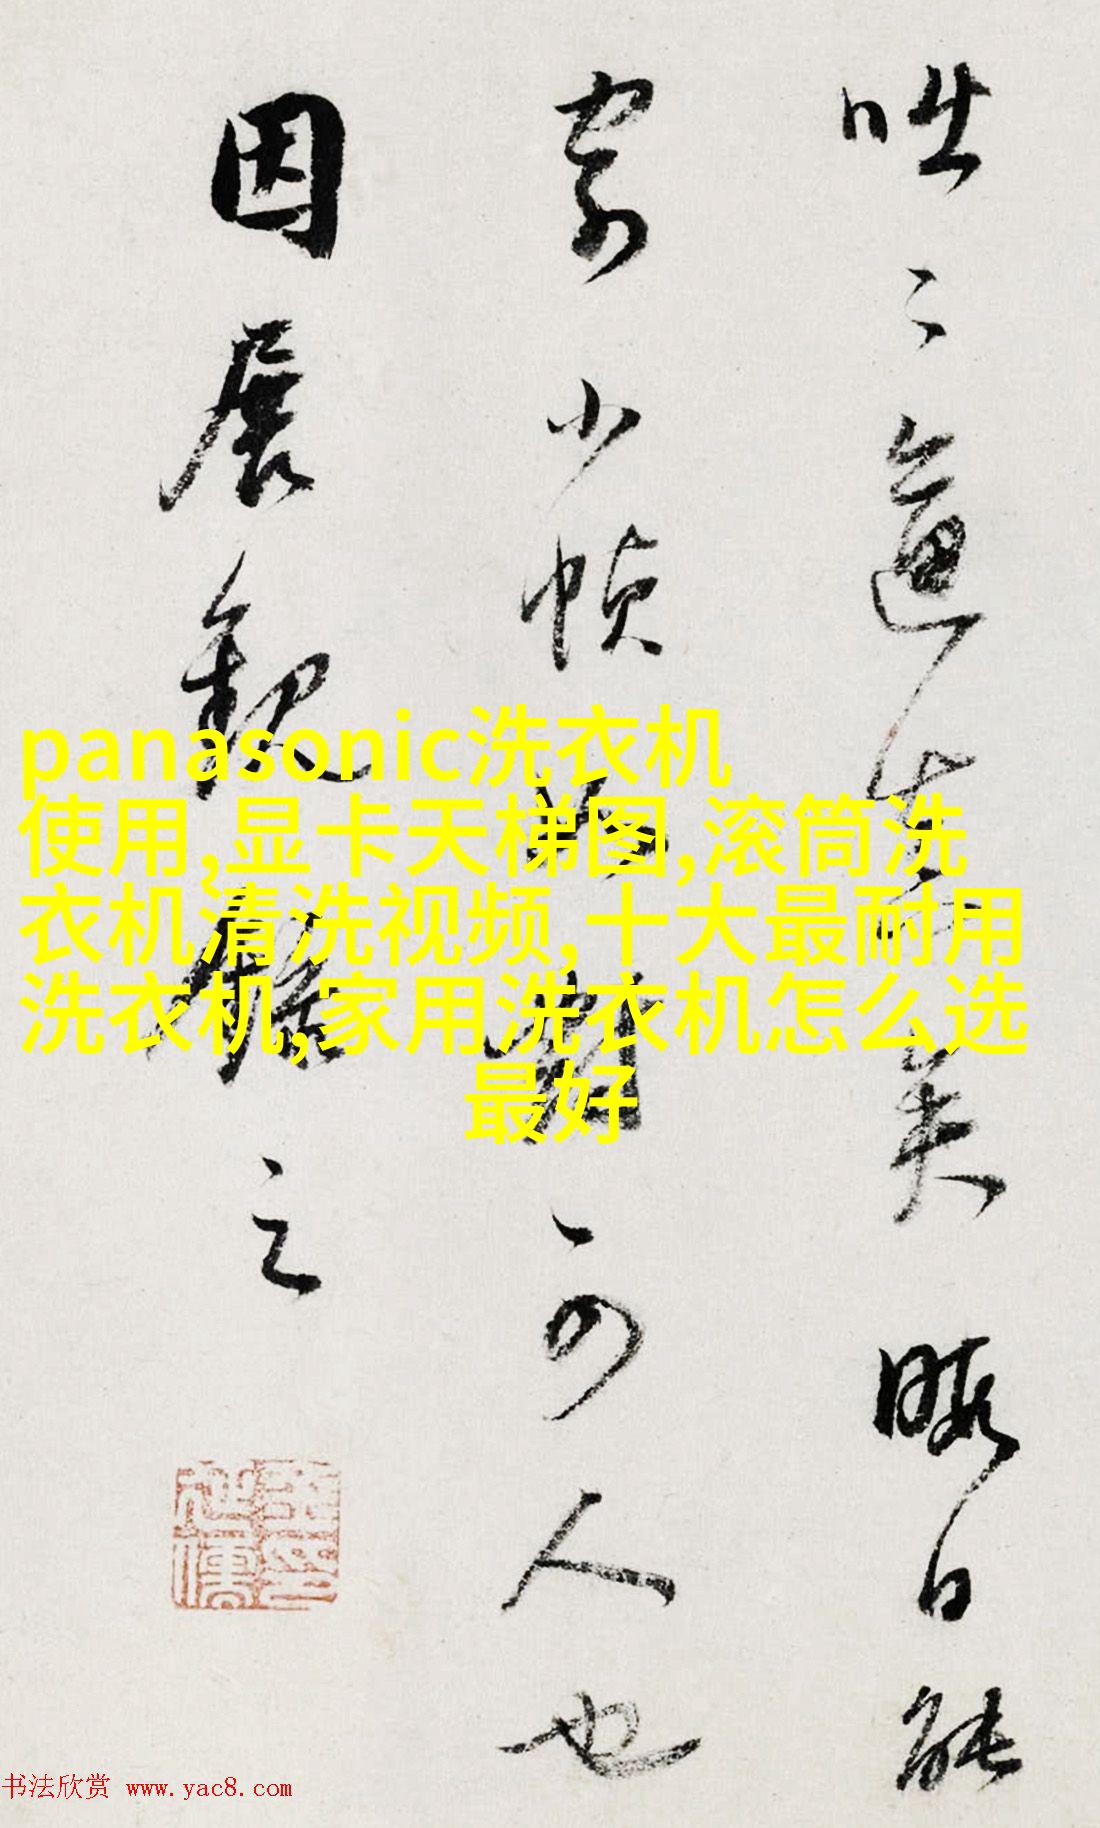 咄々逼矣暇日能
小幀可人也
因展觀之
panasonic洗衣机
使用,显卡天梯图,滚筒洗
衣机清洗视频,十大最耐用
洗衣机,家用洗衣机怎么选
最好
书法欣赏 www.yac8.com